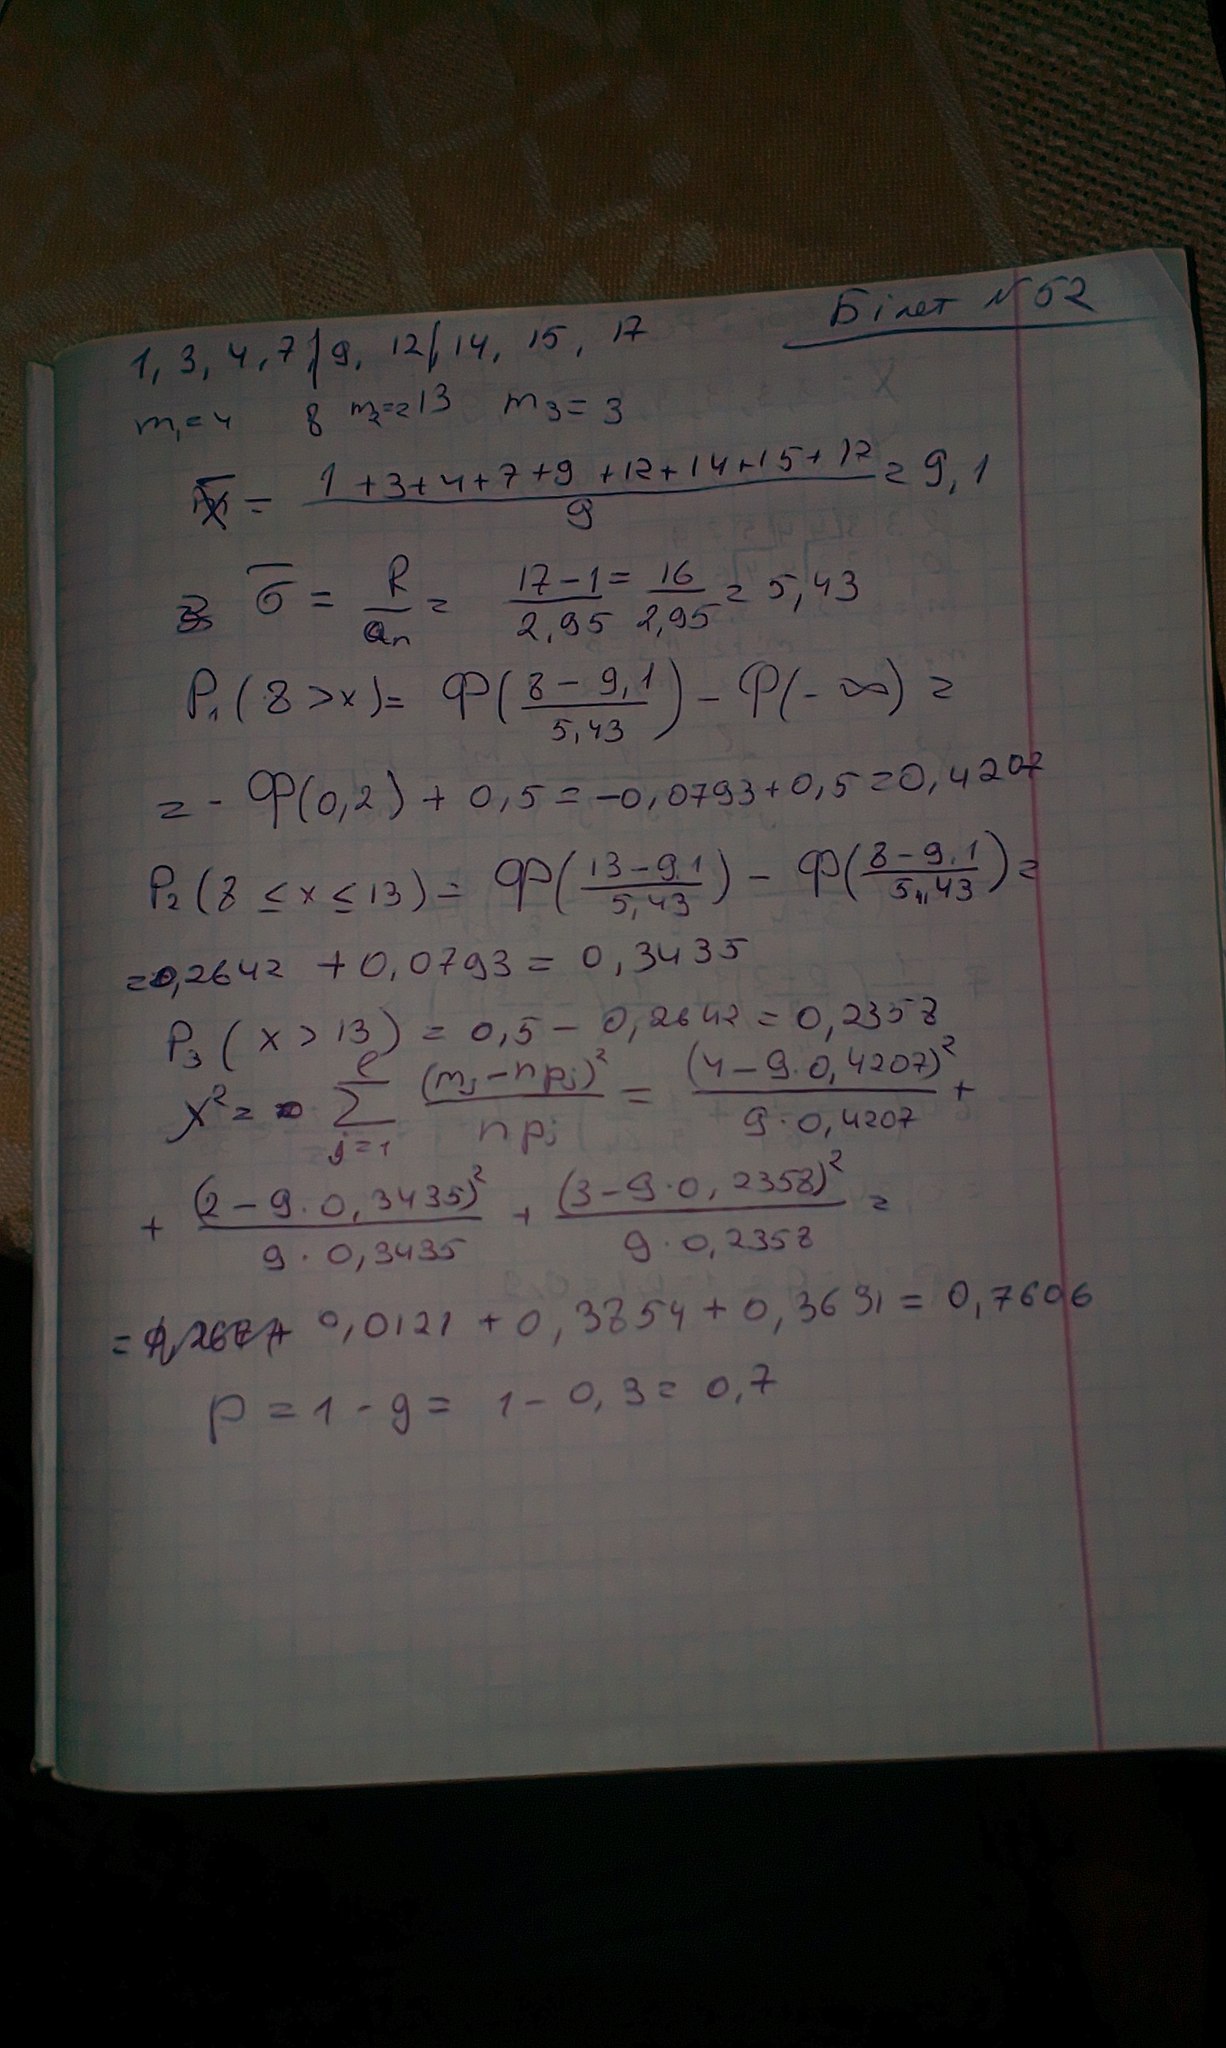 Білет №52
1, 3, 4, 7 | 9, 12 | 14, 15, 17
m₁=4 8 m₂=2 13 m₃=3
x̄ = (1+3+4+7+9+12+14+15+17)/9 = 9,1
σ̄ = R/aₙ = (17-1)/2,95 = 16/2,95 = 5,43
P₁(8>x) = Φ((8-9,1)/5,43) - Φ(-∞) =
= - Φ(0,2) + 0,5 = -0,0793+0,5=0,4207
P₂(8 ≤ x ≤ 13) = Φ((13-9.1)/5,43) - Φ((8-9.1)/5,43) =
=0,2642 + 0,0793 = 0,3435
P₃(x>13) = 0,5 - 0,2642 = 0,2358
χ² = Σ_{j=1}^{l} (mⱼ-npⱼ)²/npⱼ = (4-9·0,4207)²/9·0,4207 +
+ (2-9·0,3435)²/9·0,3435 + (3-9·0,2358)²/9·0,2358 =
= 0,0121 + 0,3854 + 0,3631 = 0,7606
p = 1 - g = 1 - 0,3 = 0,7